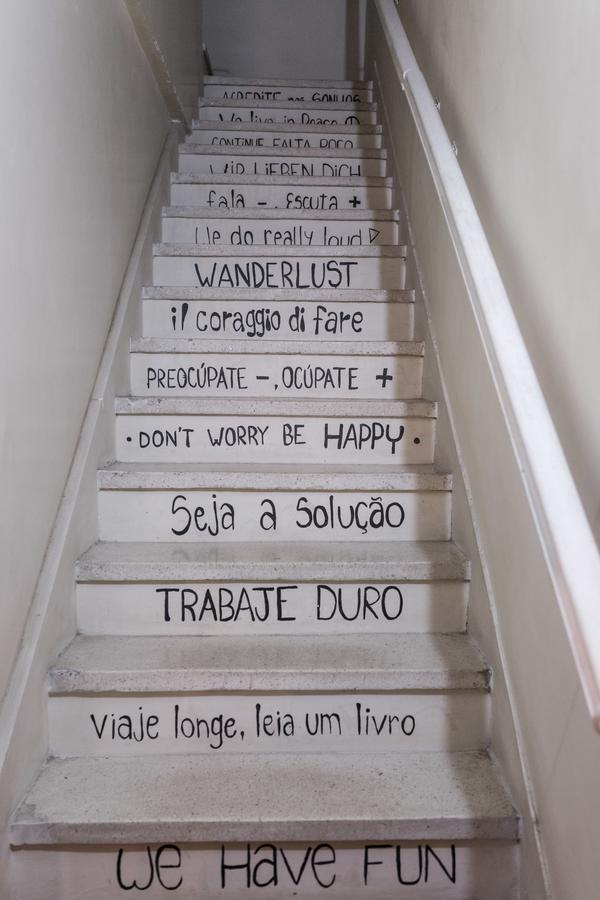 ACREDITE nos SONHOS
We live in Peace
CONTINUE FALTA POCO
WIR LIEBEN DICH
fala -, Escuta +
We do really loud
WANDERLUST
il coraggio di fare
PREOCÚPATE -, OCÚPATE +
• DON'T WORRY BE HAPPY •
Seja a Solução
TRABAJE DURO
Viaje longe, leia um livro
We HAVE FUN